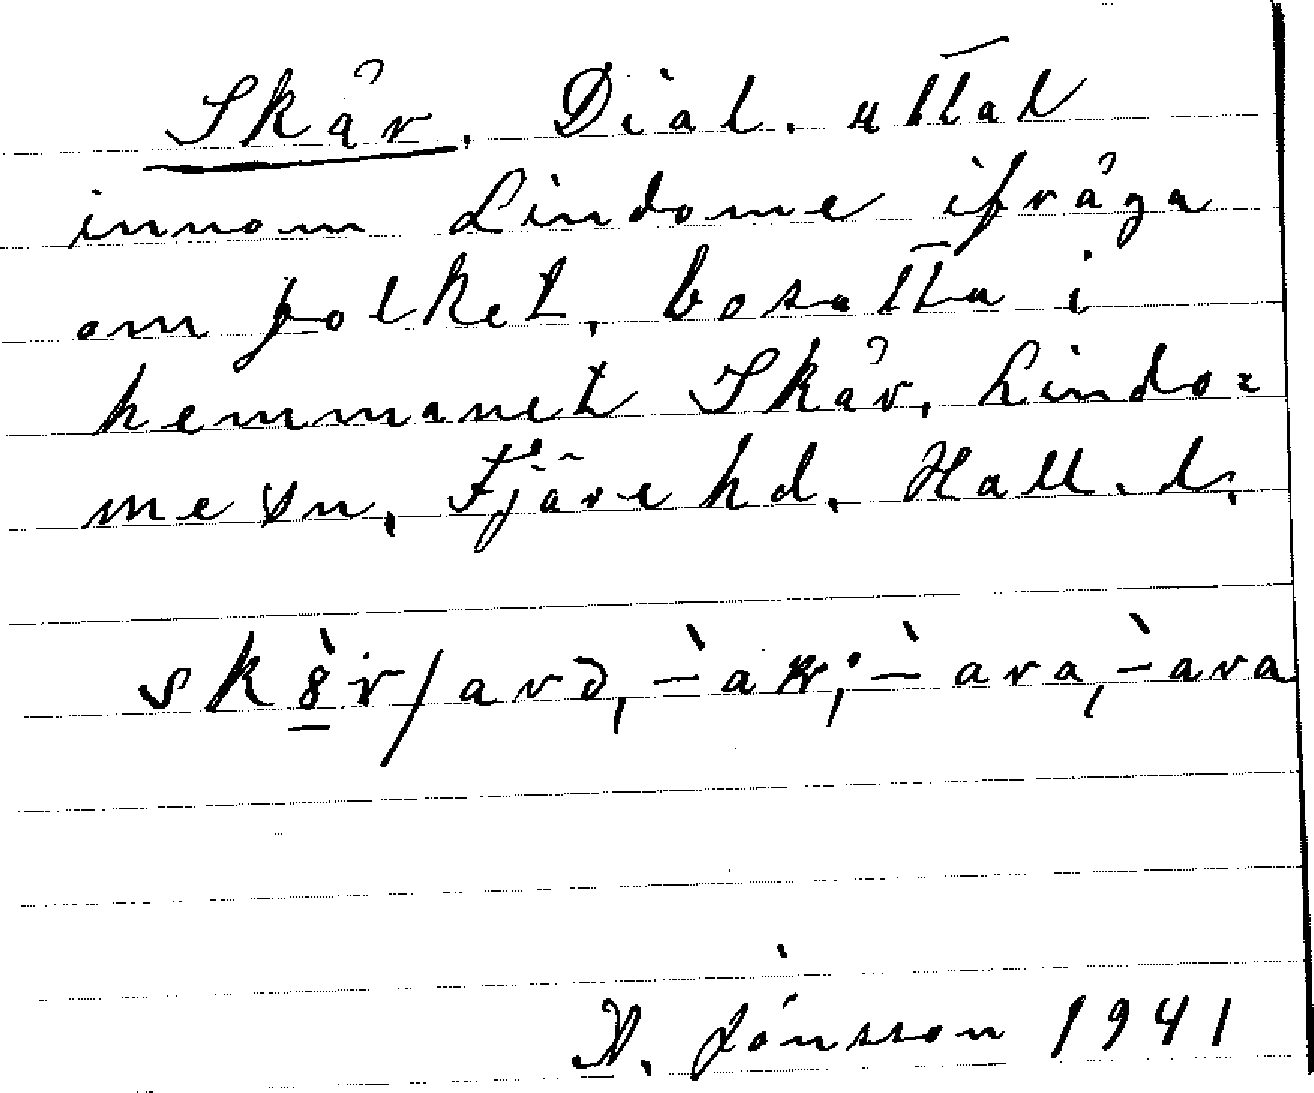 Skår. Dial. uttal
innom Lindome ifråga
om folket, bosatta i
hemmanet Skår, Lindo=
me sn, Fjäre hd, Hall. l.
/arə, -̀ar; -̀ara, -̀ara
Jönsson 1941